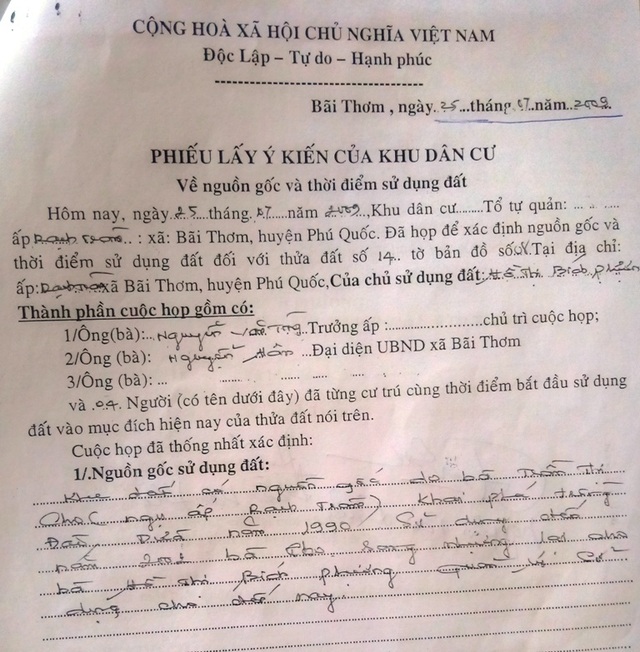 CỘNG HOÀ XÃ HỘI CHỦ NGHĨA VIỆT NAM
Độc Lập – Tự do – Hạnh phúc
Bãi Thơm , ngày..25...tháng.07.năm..2009.
PHIẾU LẤY Ý KIẾN CỦA KHU DÂN CƯ
Về nguồn gốc và thời điểm sử dụng đất
Hôm nay, ngày.25....tháng.07....năm 2009..,Khu dân cư........Tổ tự quản: ... .. ..
ấp Rạch Tràm.. : xã: Bãi Thơm, huyện Phú Quốc. Đã họp để xác định nguồn gốc và
thời điểm sử dụng đất đối với thửa đất số 14.. tờ bản đồ số Tại địa chỉ:
ấp:Rạch Tràm xã Bãi Thơm, huyện Phú Quốc,Của chủ sử dụng đất: Hồ Thị Bích Phượng
Thành phần cuộc họp gồm có:
1/Ông(bà):.. Nguyễn Văn Trưởng ấp :......................chủ trì cuộc họp;
2/Ông (bà): Nguyễn ...Đại diện UBND xã Bãi Thơm
3/Ông (bà): ...
và .04. Người (có tên dưới đây) đã từng cư trú cùng thời điểm bắt đầu sử dụng
đất vào mục đích hiện nay của thửa đất nói trên.
Cuộc họp đã thống nhất xác định:
1/.Nguồn gốc sử dụng đất:
Khu đất có nguồn gốc do bà Trần Thị
Cho ( ngụ ấp Rạch Tràm) khai phá trồng
Đào, Dừa năm 1990 Sử dụng đến
năm 2002 bà Cho sang nhượng lại cho
bà Hồ Thị Bích Phượng quản lý sử
dụng cho đến nay.